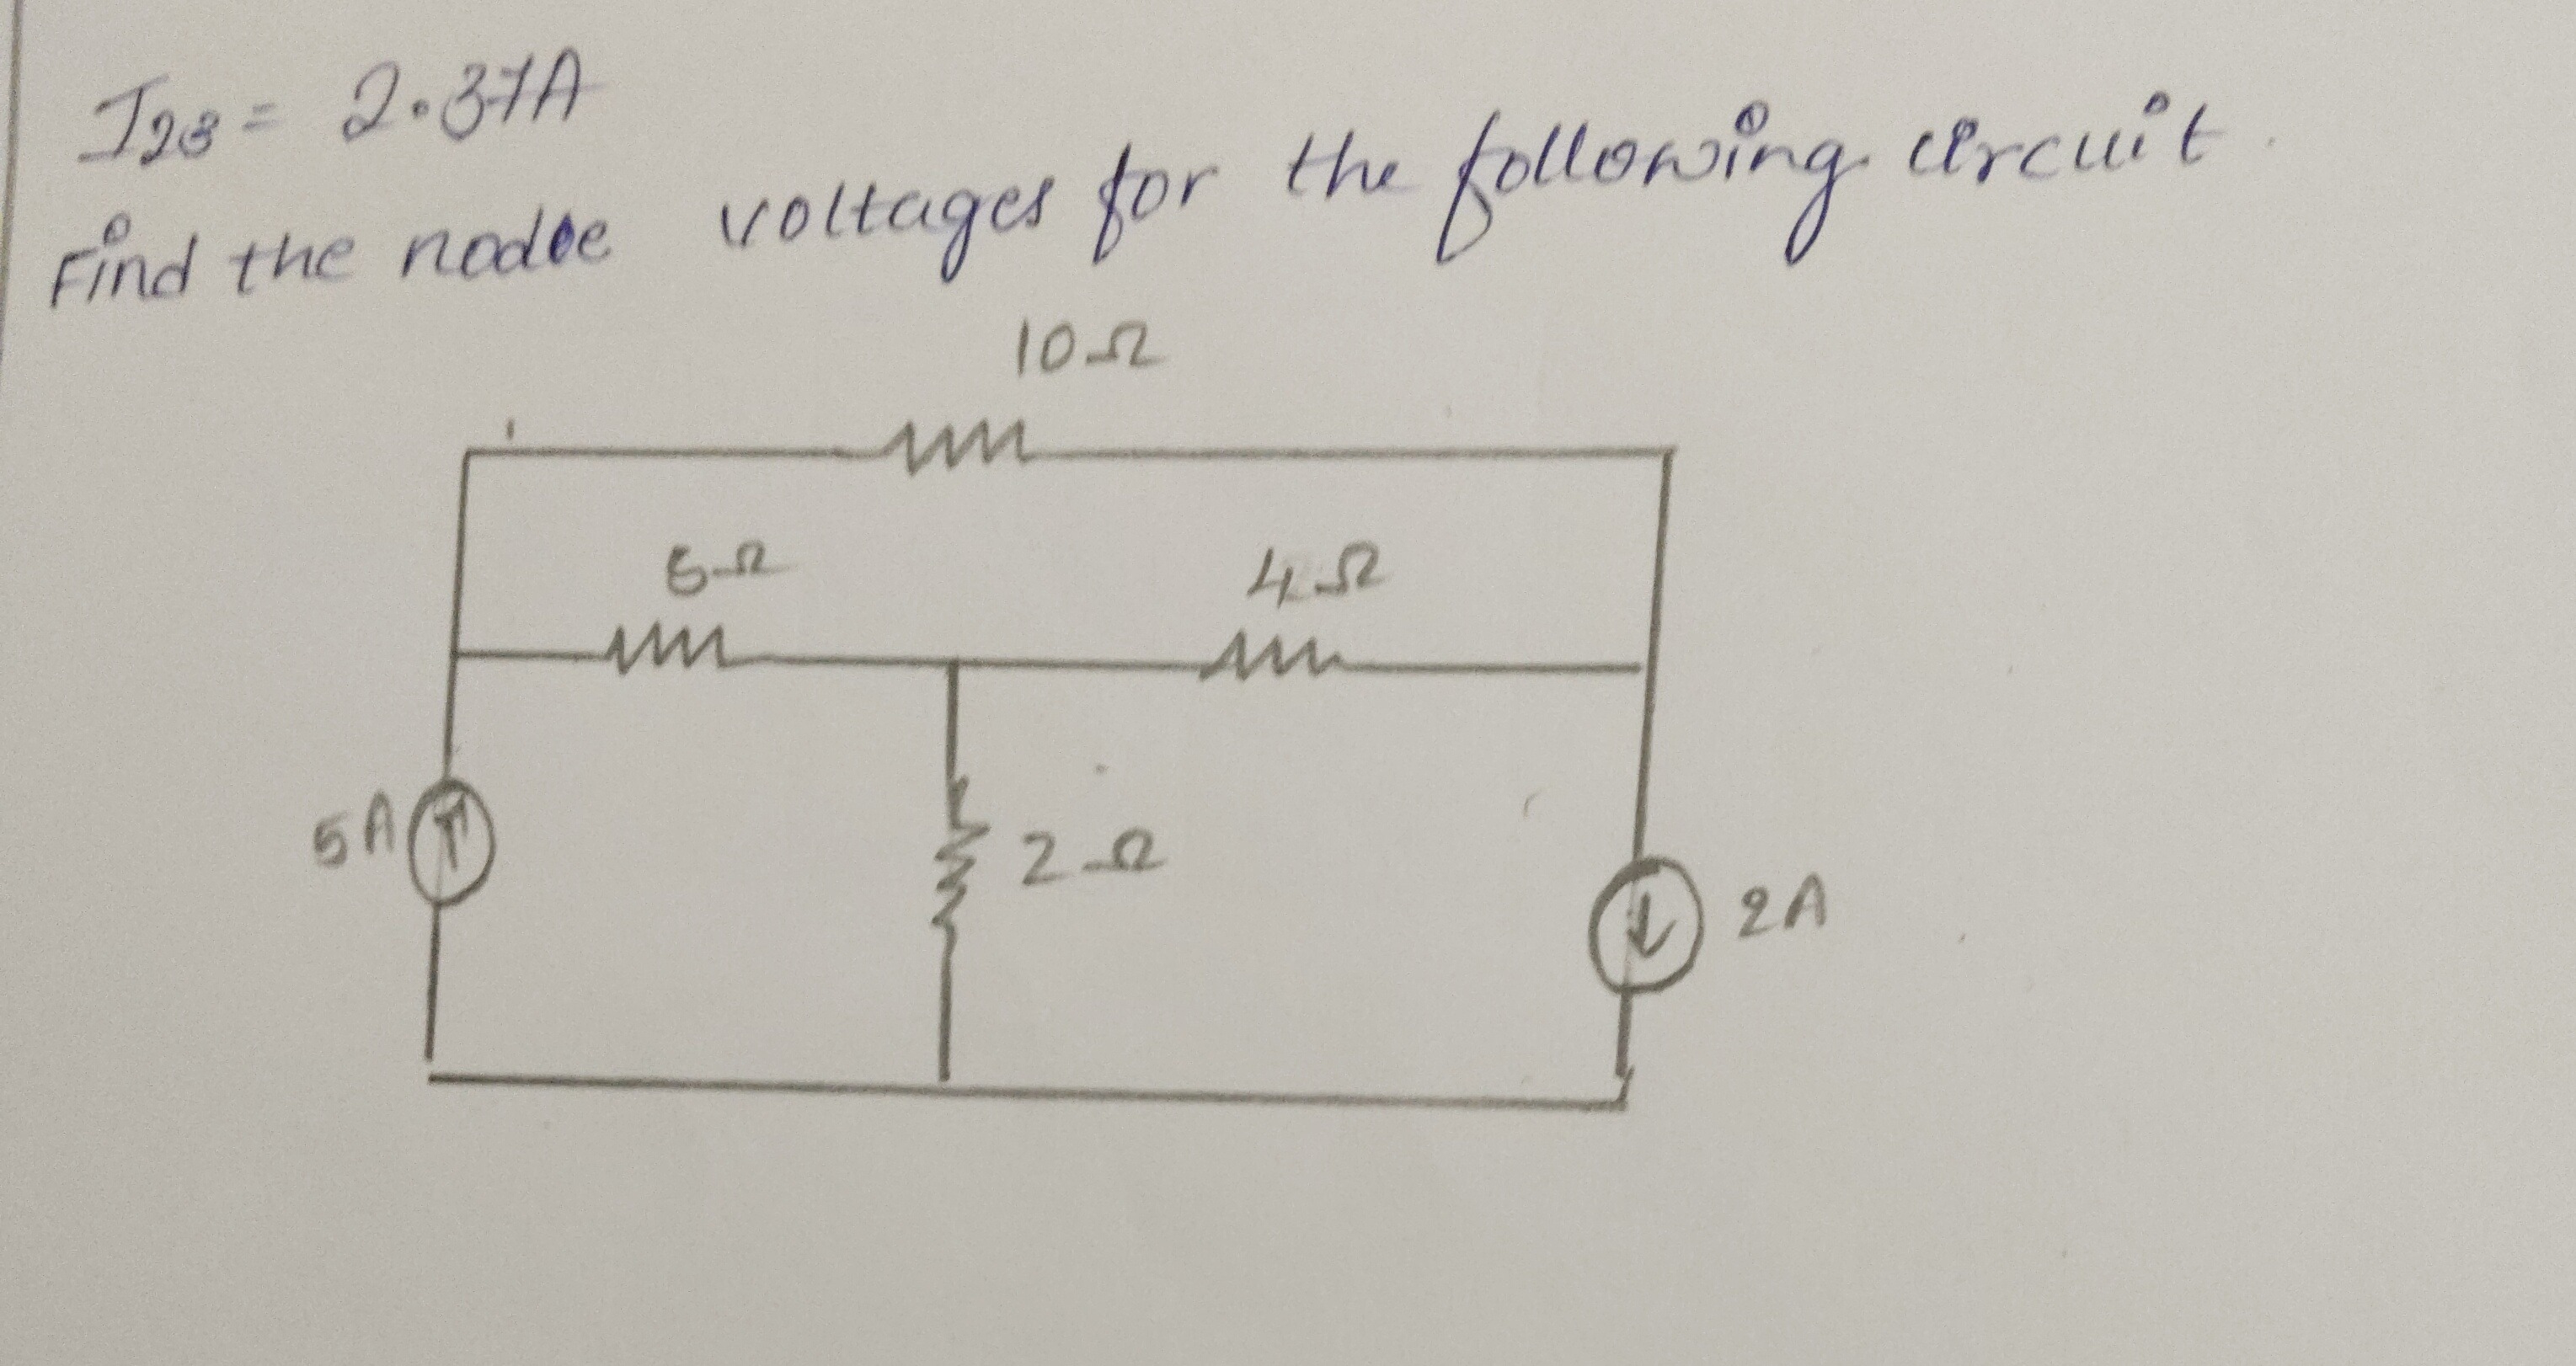 I28 = 2.37A
Find the node voltages for the following circuit.
10Ω
5Ω
4Ω
5A
2Ω
2A